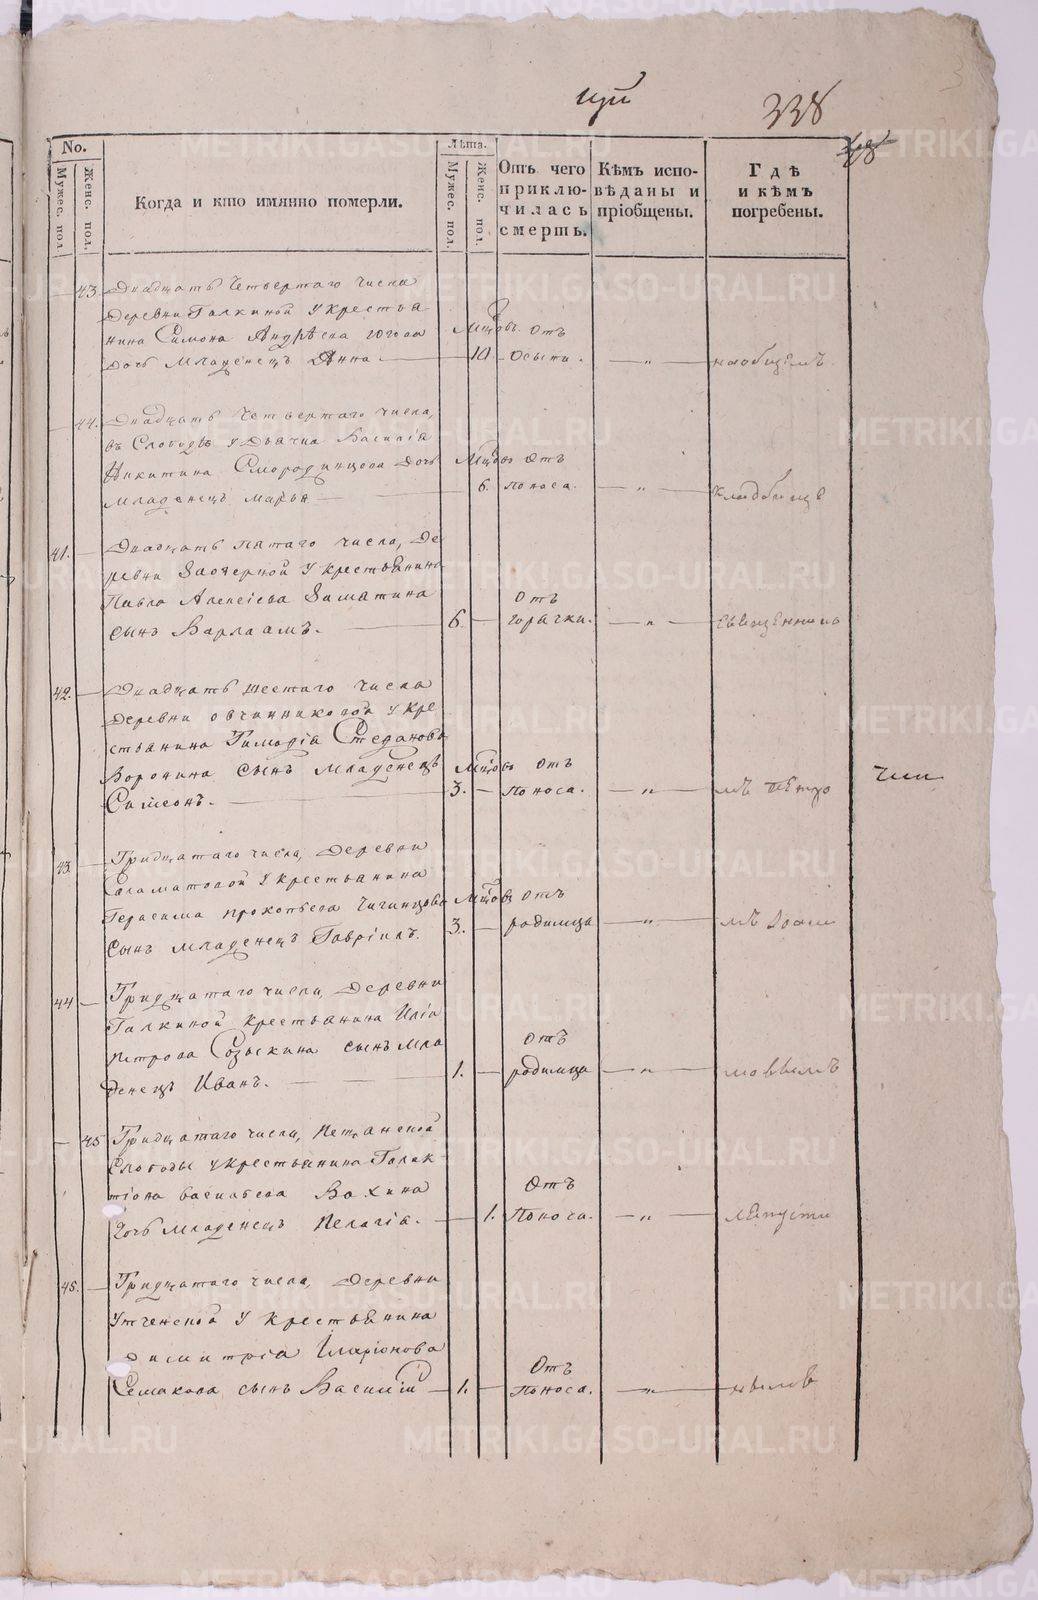 338
No.
Мужес. пол.
Женс. пол.
Когда и кто имянно померли.
Лѣта.
Мужес. пол.
Женс. пол.
Отъ чего приклю-
чилась смерть.
Кѣмъ испо-
вѣданы и
пріобщены.
Гдѣ
и кѣмъ
погребены.
43
Двадцать Четвертаго числа
деревни Галкиной у крестья-
нина Симона Андрѣева
дочь младенецъ Анна.
10.
отъ
осыпи.
на общемъ
44.
Двадцать Четвертаго числа,
въ Слободѣ у Дьячка Василія
Никитина Смородинцова дочь
младенецъ Марья
6.
отъ
поноса.
кладбище
41.
Двадцать пятаго числа, де-
ревни Заозерной у крестьянина
Павла Алексіева Заматина
сынъ Варлаамъ.
6.
отъ
горячки.
священнико
42.
Двадцать шестаго числа
деревни Овчинниковой у кре-
стьянина Тимофія Стефанова
Воронина сынъ младенецъ
Симеонъ.
3.
отъ
поноса.
мъ Петро
43.
Тридцатаго числа, деревни
Саламатовой у крестьянина
Герасима Прокопьева Чигинцова
сынъ младенецъ Гавріилъ.
3.
отъ
родимца
мъ
44
Тридцатаго числа, деревни
Галкиной крестьянина Иліи
Петрова Созыкина сынъ мла
денецъ Иванъ.
1.
отъ
родимца
45
Тридцатаго числа,
Слободы у крестьянина Галак
тіона Васильева Вахина
дочь младенецъ Пелагія.
1.
отъ
поноса.
45.
Тридцатаго числа, деревни
у крестьянина
Димитрія Иларіонова
Семакова сынъ Василій
1.
отъ
поноса.
METRIKI.GASO-URAL.RU